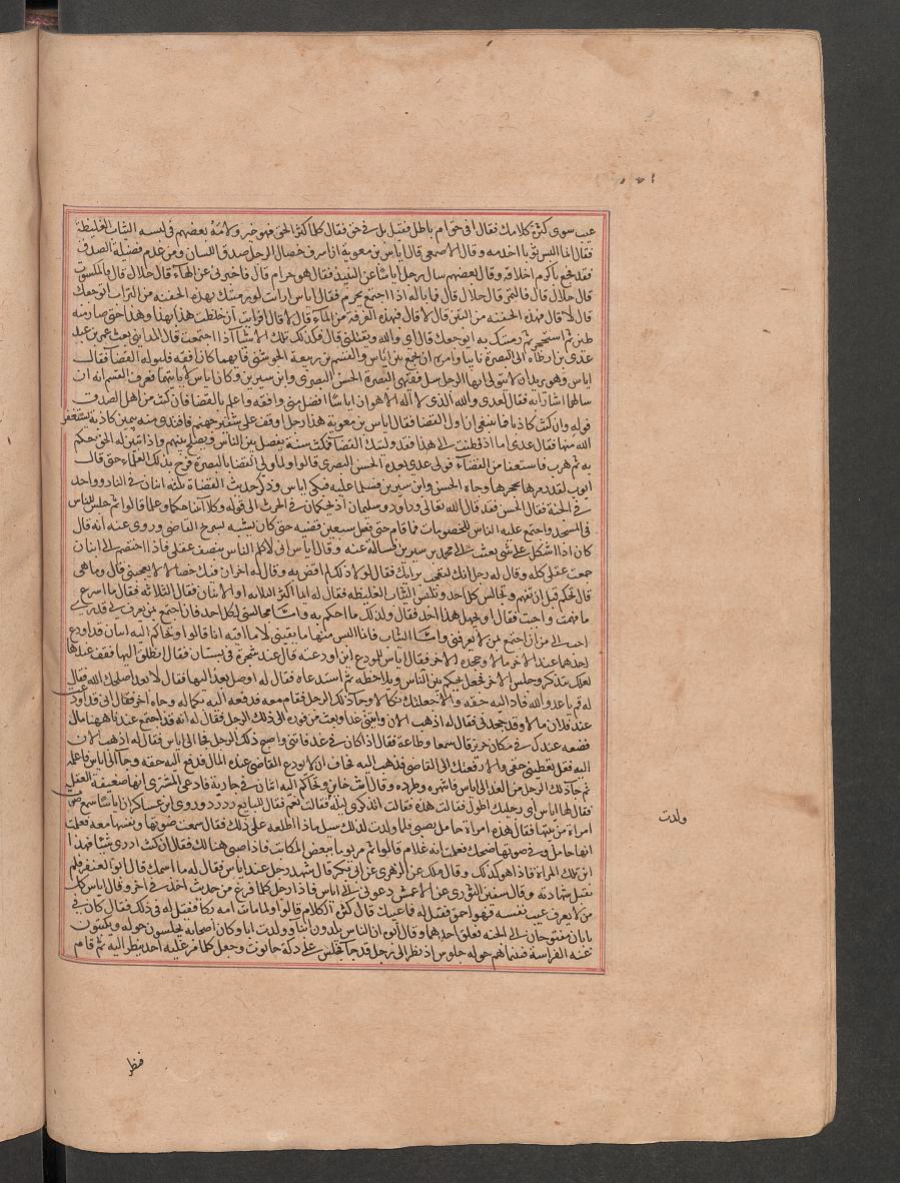 عيب سوى كثرة كلامك فقال افى حق ام باطل فقيل بل فى حق فقال كلما كثر الحق فهو خير ولامه بعضهم فى لبسه الثياب الغليظة
فقال انما البس ثوبا اخدمه وقال الاصمعى قال اياس بن معوية ان اشرف خصال الرجل صدق اللسان ومن عدم فضيلة الصدق
فقد فجع باكرم اخلاقه وقال بعضهم سال رجل اياسا عن النبيذ فقال هو حرام قال فاخبرنى عن الماء قال حلال قال فالكسوث
قال حلال قال فالتمر قال حلال قال فما باله اذا اجتمع يحرم فقال اياس ارايت لو رميتك بهذه الحفنه من التراب اتوجعك
قال لا قال فهذه الحفنه من التبن قال لا قال فهذه الغرفة من الماء قال لا قال افرايت ان خلطت هذا بهذا وهذا حتى صار منه
طين ثم استحجر ثم رميتك به ايوجعك قال اى والله ويقتلنى قال فكذلك تلك الاشيا اذا اجتمعت قال المداينى بعث عمر بن عبد
عدى بن ارطاه الى البصرة نايبا وامره ان يجمع بين اياس والقسم بن ربيعة الجوشنى فايهما كان افقه فليوله القضا فقال
اياس وهو يريد ان لا يتولى ايها الرجل سل فقيهى البصرة الحسن البصرى وابن سيرين وكان اياس لا ياتيهما فعرف القسم انه ان
سالهما اشارا به فقال لعدى والله الذى لا اله الا هو ان اياسا افضل منى وافقه واعلم بالقضا فان كنت من اهل الصدق
فوله وان كنت كاذبا فما ينبغى ان اول القضا فقال اياس بن معوية هذا رجل اوقف على شفير جهنم فافتدى منه بيمين كاذبة يستغفر
الله منها فقال عدى اما اذ فطنت لى هذا فقد وليتك القضا فمكث سنة يفصل بين الناس ويصلح بينهم واذا تبين له الحق حكم
به ثم هرب فاستعفا من القضاء فولى عدى بعده الحسن البصرى قالوا ولما ولى القضا بالبصرة فرح بذلك العلماء حتى قال
ايوب لقد رموها بحجرها وجاه الحسن وابن سيرين فسلما عليه فبكى اياس وذكر حديث القضاة ثلثه اثنان فى النار وواحد
فى الجنة فقال الحسن فقد قال الله تعالى وداود وسليمان اذ يحكمان فى الحرث الى قوله وكلا آتينا حكما وعلما قالوا ثم جلس للناس
فى المسجد واجتمع عليه الناس للخصومات فما قام حتى فصل سبعين قضيه حتى كان يشبه بشريح القاضى وروى عنه انه قال
كان اذا اشكل على شى بعث الى محمد بن سيرين لمسالة عنه وقال اياس انى لاكلم الناس بنصف عقلى فاذا اختصم الى اثنان
جمعت عقلى كله وقال له رجل انك لتعجب برايك فقال لولا ذلك لم اقض به وقال له اخر ان فيك خصالا لا يعجبنى قال وما هى
قال تحكم قبل ان تفهم وتجالس كل احد وتلبس الثياب الغليظه فقال له ايما اكثر الثلاثه او الاثنان فقال الثلاثه فقال ما اسرع
ما فهمت واجبت فقال او يجهل هذا احد فقال وكذلك ما احكم به واما مجالستى لكل احد فلان اجتمع بمن يعرف لى قدرى
احب الى من ان اجتمع بمن لا يعرفنى واما الثياب فانا البس منها ما يقينى لا ما اقيه انا قالوا وتحاكم اليه اثنان قد اودع
احدهما عند الاخر مالا وجحده الاخر فقال اياس للمودع اين اودعته قال عند شجرة فى بستان فقال انطلق اليها فقف عندها
لعلك تتذكر وجلس الاخر فجعل يحكم بين الناس ويلاحظه ثم استدعاه فقال له اوصل بعد اليها فقال لا بعد اصلحك الله فقال
له قم يا عدو الله فاد اليه حقه والا جعلتك نكالا وجا ذلك الرجل فقام معه فدفعه اليه بكماله وجاه آخر فقال انى قد اودعت
عند فلان مالا وقد جحدنى فقال له اذهب الان وايتنى غدا وبعث من فوره الى ذلك الرجل فقال له انه قد اجتمع عندنا ههنا مال
فضعه عندك فى مكان حريز قال سمعا وطاعة فقال اذا كان فى غد فاتنى واصبح ذلك الرجل فجا الى اياس فقال له اذهب الان
اليه فقل تعطينى حقى والا رفعتك الى القاضى فذهب اليه فخاف ان لا يودع القاضى عنده المال فدفع اليه حقه وجا الى اياس فاعلمه
ثم جا ذلك الرجل من الغد الى اياس فانتهره وطرده وقال انت خاين وتحاكم اليه اثنان فى جارية فادعى المشترى انها ضعيفة العقل
فقال لها اياس اى رجليك اطول فقالت هذه فقالت اتذكرى ليلة فقالت نعم فقال للبايع رد رد وروى ابن عساكر ان اياسا سمع صوت
امراة من بيتها فقال هذه امراة حامل بصبى فلما ولدت لذلك سيل ماذا اطلعه على ذلك فقال سمعت صوتها ونفسها معه فعلمت
انها حامل وفى صوتها ضحك فعلمت انه غلام قالوا ثم مر يوما ببعض المكاتب فاذا صبى هنالك فقال ان كنت ادرى شيئا فهذا
ابن تلك المراة فاذا هو كذلك وقال ملك عن الزهرى عن ابى بكر قال شهد رجل عند اياس فقال له ما اسمك قال ابو العنفر فلم
يقبل شهادته وقال سفين الثورى عن الاعمش دعونى الى اياس فاذا رجل كلما فرغ من حديث اخذ فى اخر وقال اياس كل
من لا يعرف عيب نفسه فهو احمق فقيل له فما عيبك قال كثرة الكلام قالوا ولما ماتت امه بكا فقيل له فى ذلك فقال كان لى
بابان مفتوحان الى الجنه فغلق احدهما وقال له ابوه ان الناس يلدون ابنآ وولدت ابا وكان اصحابه يجلسون حوله ويكتبون
عنه الفراسة فبينما هم حوله جلوس اذ نظر الى رجل قد جا فجلس على دكة حانوت وجعل كلما مر عليه احد ينظر اليه ثم قام
ولدت
فنظر